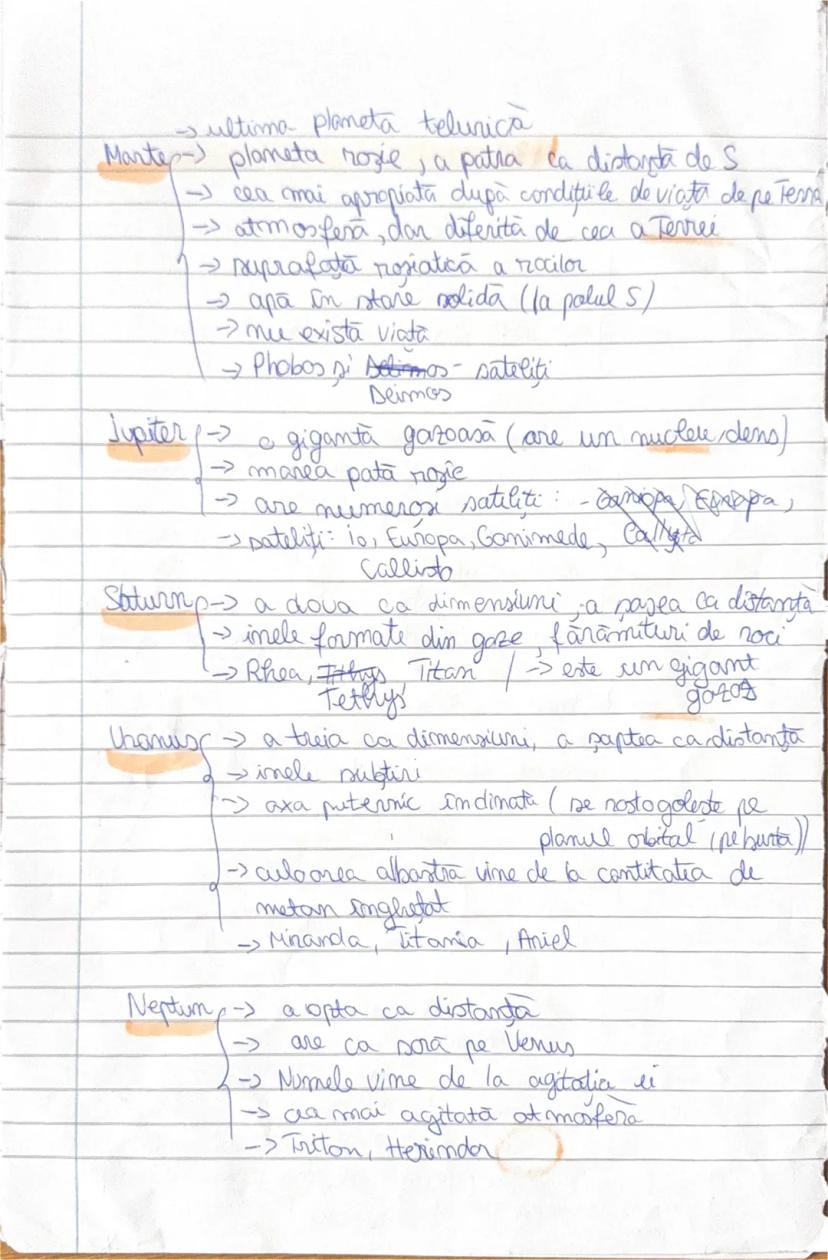 → ultima planeta telurică
Marte → planeta roșie, a patra ca distanță de S
→ cea mai apropiată după condițiile de viață de pe Terra
→ atmosferă, dar diferită de cea a Terrei
→ suprafață roșiatică a rocilor
→ apă în stare solidă (la polul S)
→ nu există viață
→ Phobos și Deimos - sateliți
Deimos
Jupiter → o gigantă gazoasă (are un nucleu dens)
→ marea pată roșie
→ are numeroși sateliți: - Europa,
→ sateliți: Io, Europa, Ganimede,
Callisto
Saturn → a doua ca dimensiuni, a șasea ca distanță
→ inele formate din gaze, fărâmituri de roci
→ Rhea, Titan / → este un gigant
Tethys gazos
Uranus → a treia ca dimensiuni, a șaptea ca distanță
→ inele subțiri
→ axa puternic înclinată (se rostogolește pe
planul orbital (pe burtă))
→ culoarea albastră vine de la cantitatea de
metan înghețat
→ Miranda, Titania, Ariel
Neptun → a opta ca distanță
→ are ca soră pe Venus
→ Numele vine de la agitația ei
→ cea mai agitată atmosferă
→ Triton,